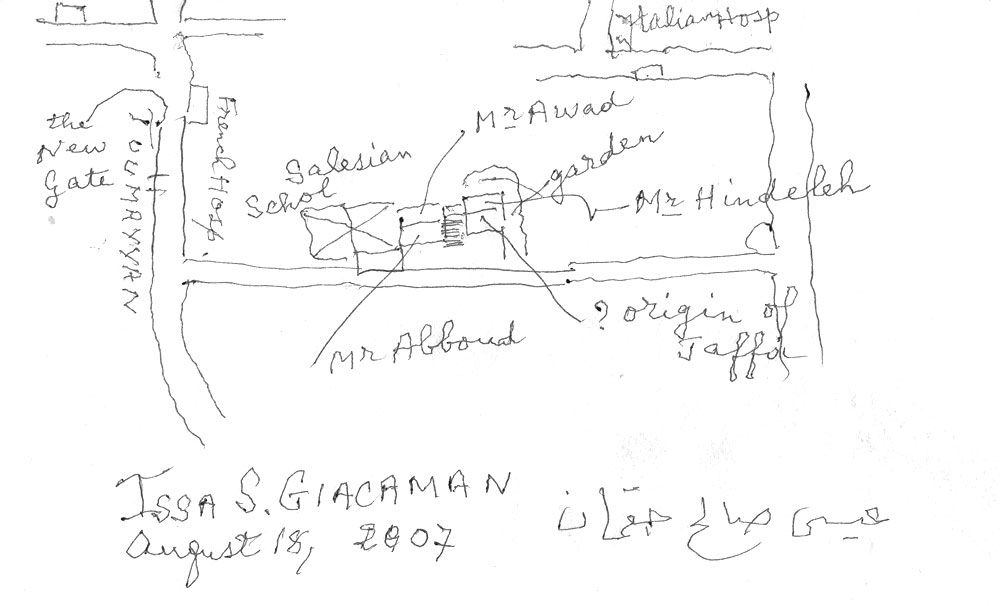 Italian Hosp
the
New
Gate
TOUMAYYAN
French Hosp.
Salesian
Schol
Mr Awad
garden
Mr Hindeleh
? origin of
Jaffa
Mr Abboud
ISSA S. GIACAMAN
August 18, 2007
عيسى صالح جقمان